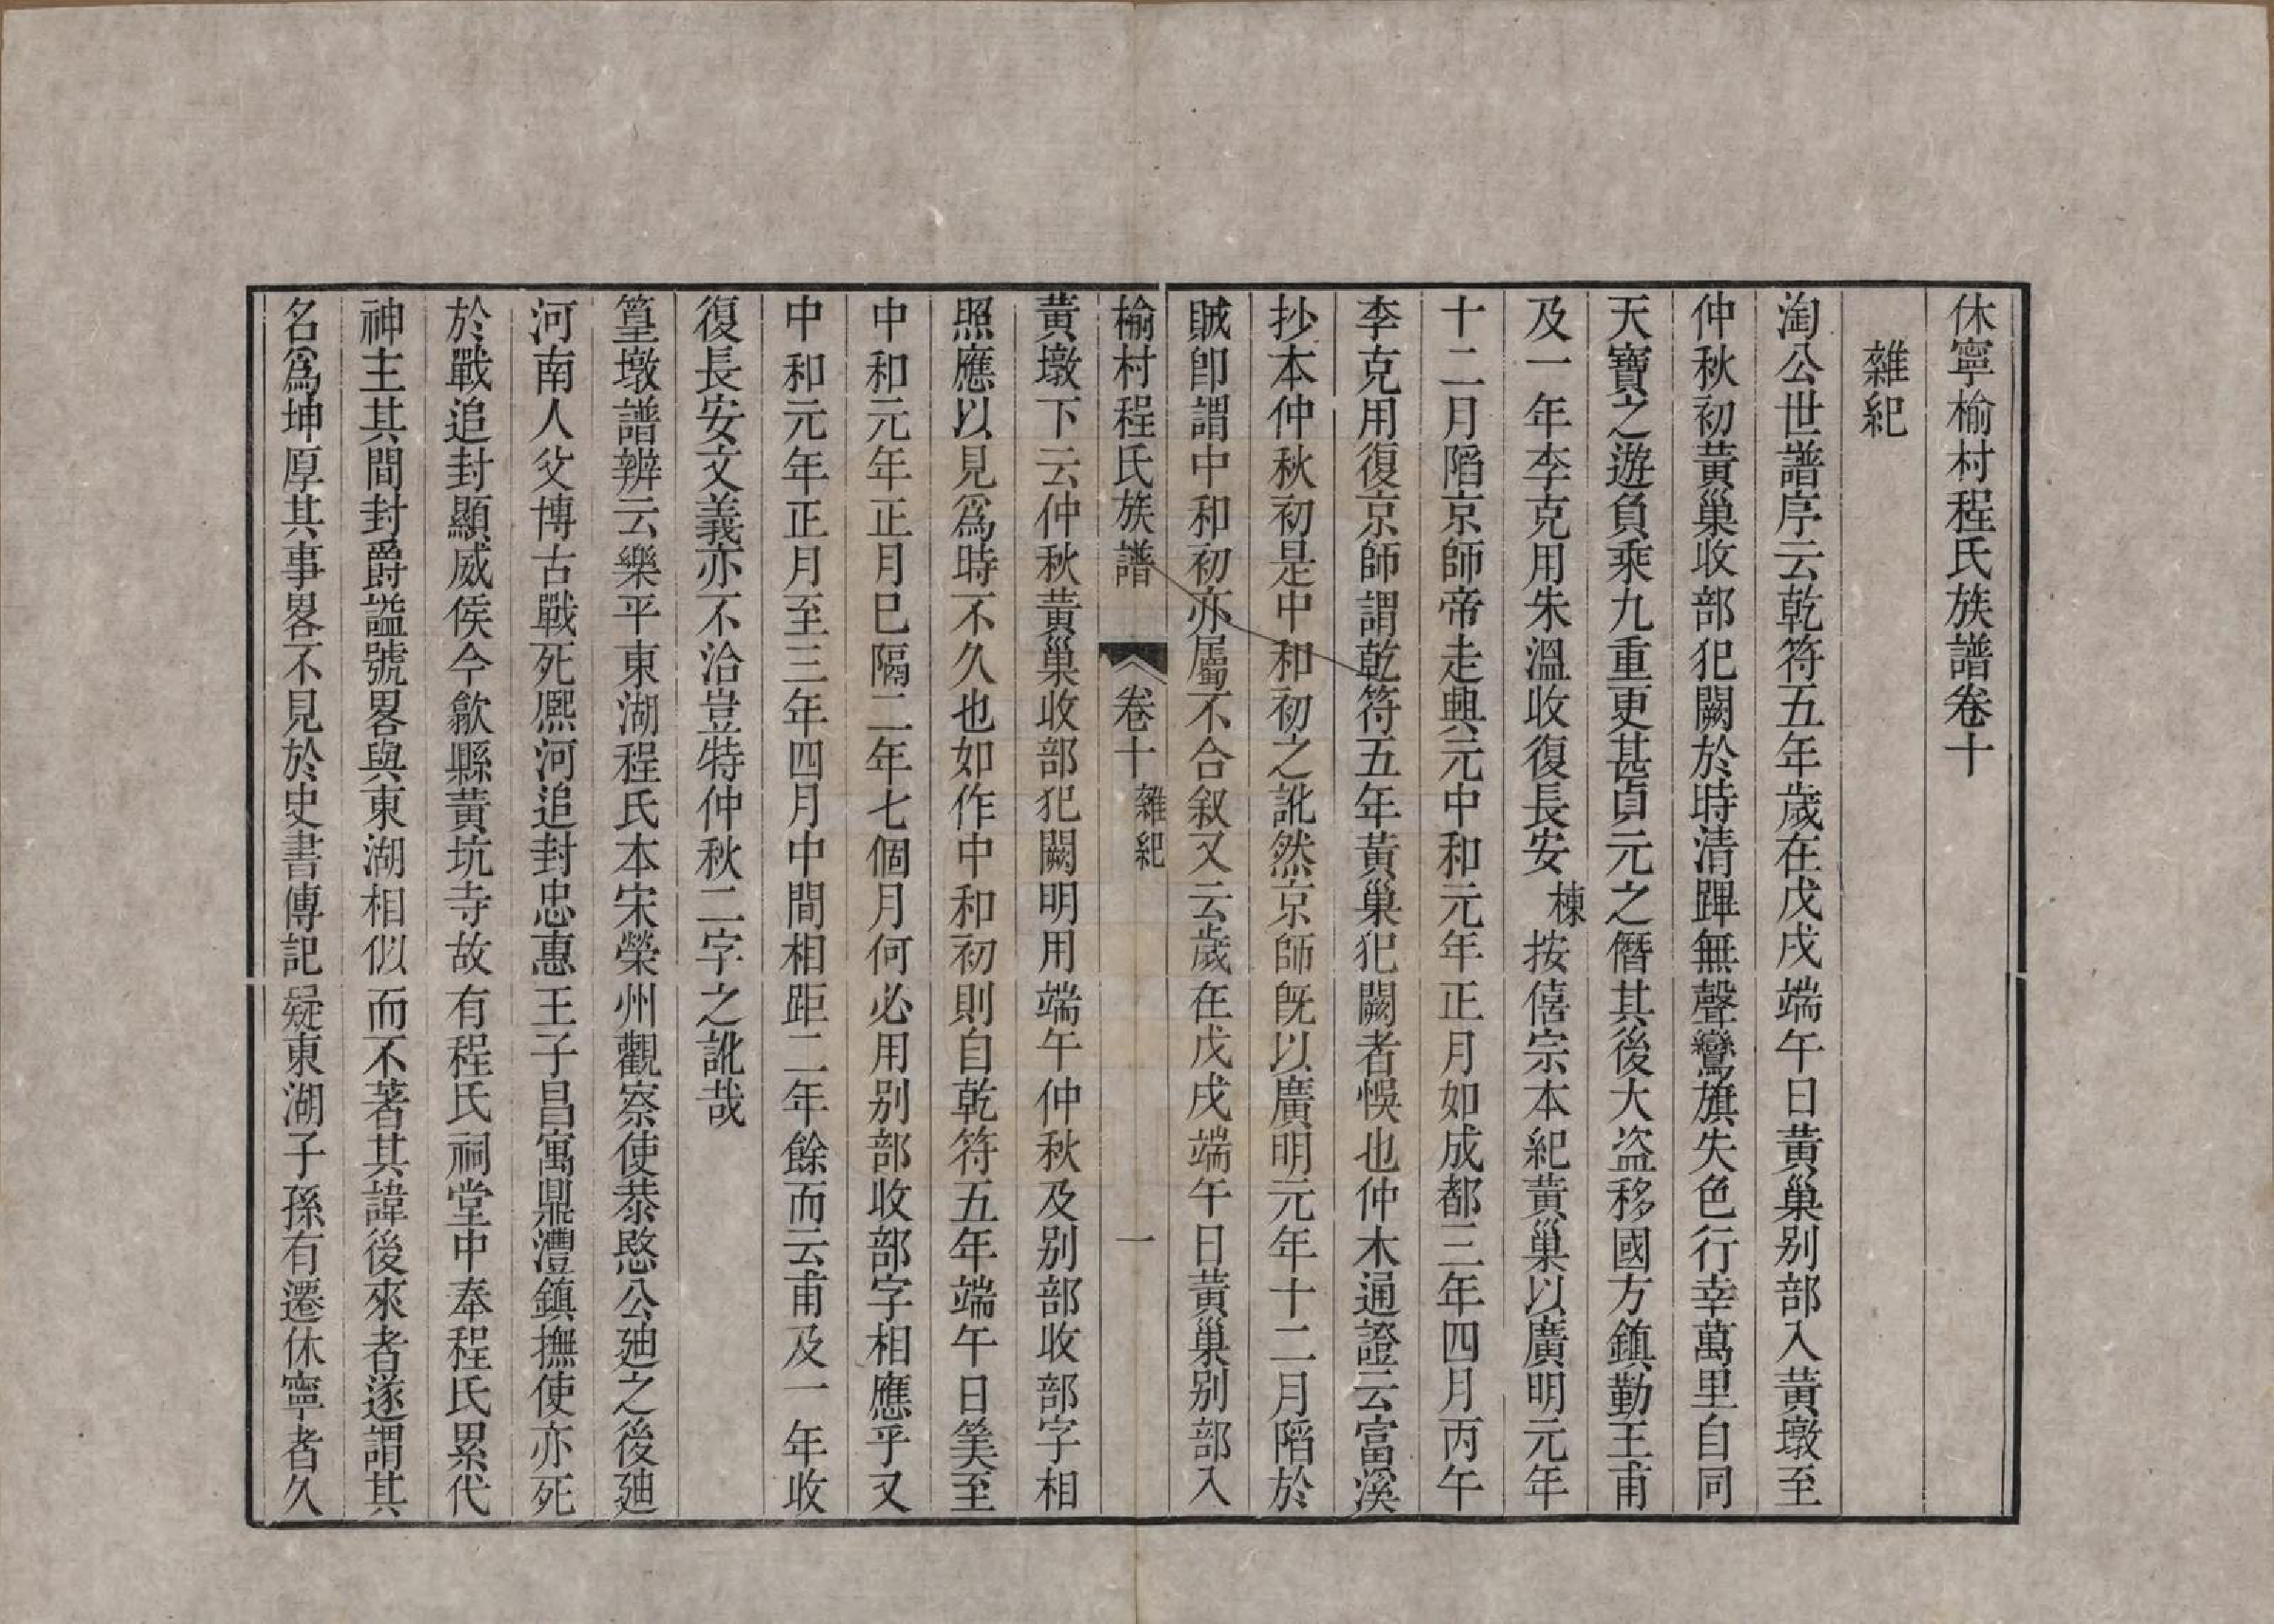 休寧榆村程氏族譜卷十
雜紀
淘公世譜序云乾符五年歲在戊戌端午日黃巢别部入黃墩至
仲秋初黃巢收部犯闕於時清蹕無聲鸞旗失色行幸萬里自同
天寶之遊負乘九重更甚貞元之僭其後大盜移國方鎮勤王甫
及一年李克用朱溫收復長安棟按僖宗本紀黃巢以廣明元年
十二月陷京師帝走興元中和元年正月如成都三年四月丙午
李克用復京師謂乾符五年黃巢犯闕者悞也仲木通證云富溪
抄本仲秋初是中和初之訛然京師旣以廣明元年十二月陷於
賊卽謂中和初亦屬不合叙又云歲在戊戌端午日黃巢别部入
榆村程氏族譜 卷十 雜紀 一
黃墩下云仲秋黃巢收部犯闕明用端午仲秋及别部收部字相
照應以見爲時不久也如作中和初則自乾符五年端午日筭至
中和元年正月巳隔二年七個月何必用别部收部字相應乎又
中和元年正月至三年四月中間相距二年餘而云甫及一年收
復長安文義亦不洽豈特仲秋二字之訛哉
篁墩譜辨云樂平東湖程氏本宋榮州觀察使恭愍公廸之後廸
河南人父博古戰死熈河追封忠惠王子昌寓鼎灃鎮撫使亦死
於戰追封顯威侯今歙縣黃坑寺故有程氏祠堂中奉程氏累代
神主其間封爵謚號畧與東湖相似而不著其諱後來者遂謂其
名爲坤厚其事畧不見於史書傳記疑東湖子孫有遷休寧者久